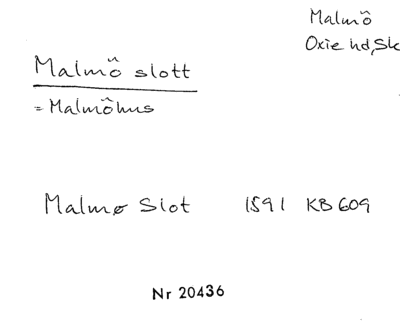 Malmö
Oxie hd, Sk
Malmö slott
= Malmöhus
Malmø Slot 1591 KB 609
Nr 20436